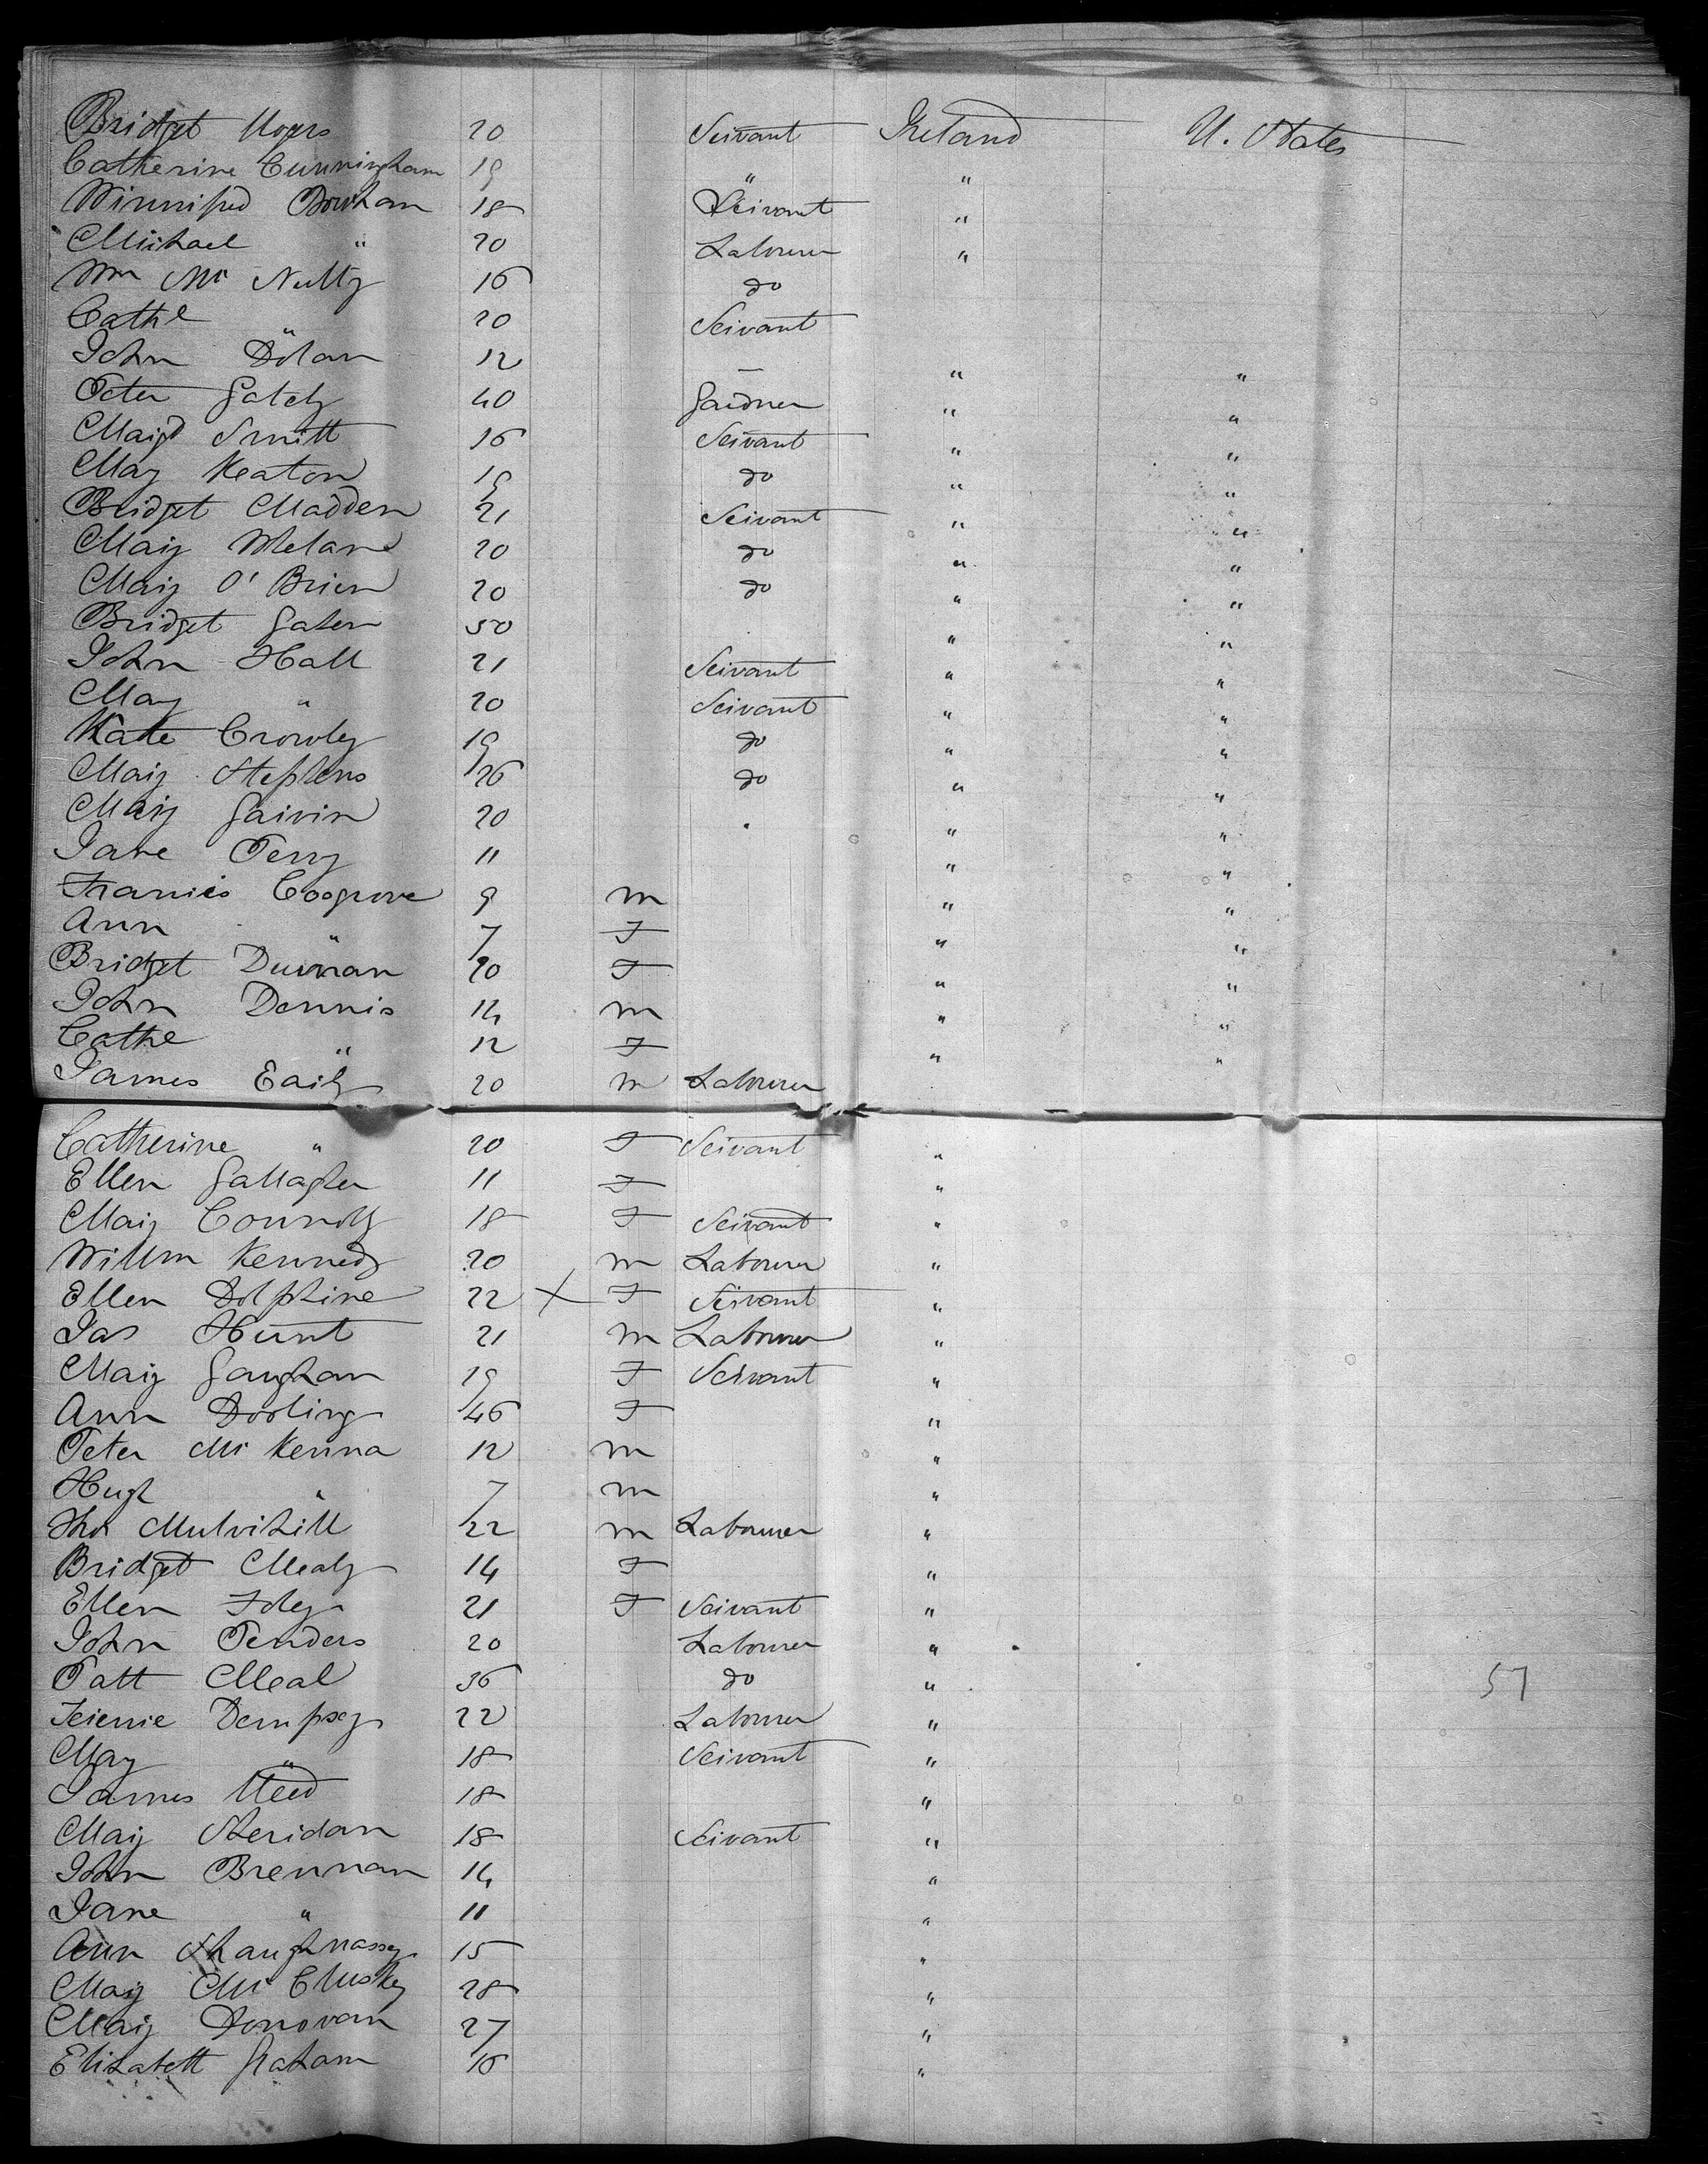 Bridget Moyers 20 Servant Ireland U. States
Catherine Cunningham 19 " "
Winnifred Dowhan 18 Servant "
Michael " 20 Labourer "
Wm Mc Nulty 16 do
Cathe " 20 Servant
John Dolan 12 — " "
Peter Gately 40 Gardner " "
Margt Smitt 16 Servant " "
Mary Keaton 19 do " "
Bridget Madden 21 Servant " "
Mary Whelan 20 do " "
Mary O' Brien 20 do " "
Bridget Gaten 50 " "
John Hall 21 Servant " "
Mary " 20 Servant " "
Kate Crowley 19 do " "
Mary Stephens 26 do " "
Mary Garvin 20 " "
Jane Perry 11 " "
Francis Cosgrove 9 m " "
Ann " 7 F " "
Bridget Durnan 20 F " "
John Dennis 14 m " "
Cathe " 12 F " "
James Early 20 m Labourer
Catherine " 20 F Servant "
Ellen Gallagher 11 F "
Mary Connolly 18 F Servant "
Willm Kennedy 20 m Labourer "
Ellen Dolphine 22 X F Servant "
Jas Hunt 21 m Labourer "
Mary Gaughan 19 F Servant "
Ann Dooling 46 F "
Peter Mc Kenna 12 m "
Hugh " 7 m "
Thos Mulvihill 22 m Labourer "
Bridget Mealy 14 F "
Ellen Foley 21 F Servant "
John Penders 20 Labourer "
Patt Meal 36 do " 57
Dempsey 22 Labourer "
Mary " 18 Servant "
James 18 "
Mary Sheridan 18 Servant "
John Brennan 14 "
Jane " 11 "
Ann Shaughnassy 15 "
Mary Mc Clusky 28 "
Mary Donovan 27 "
Elizabeth Graham 16 "